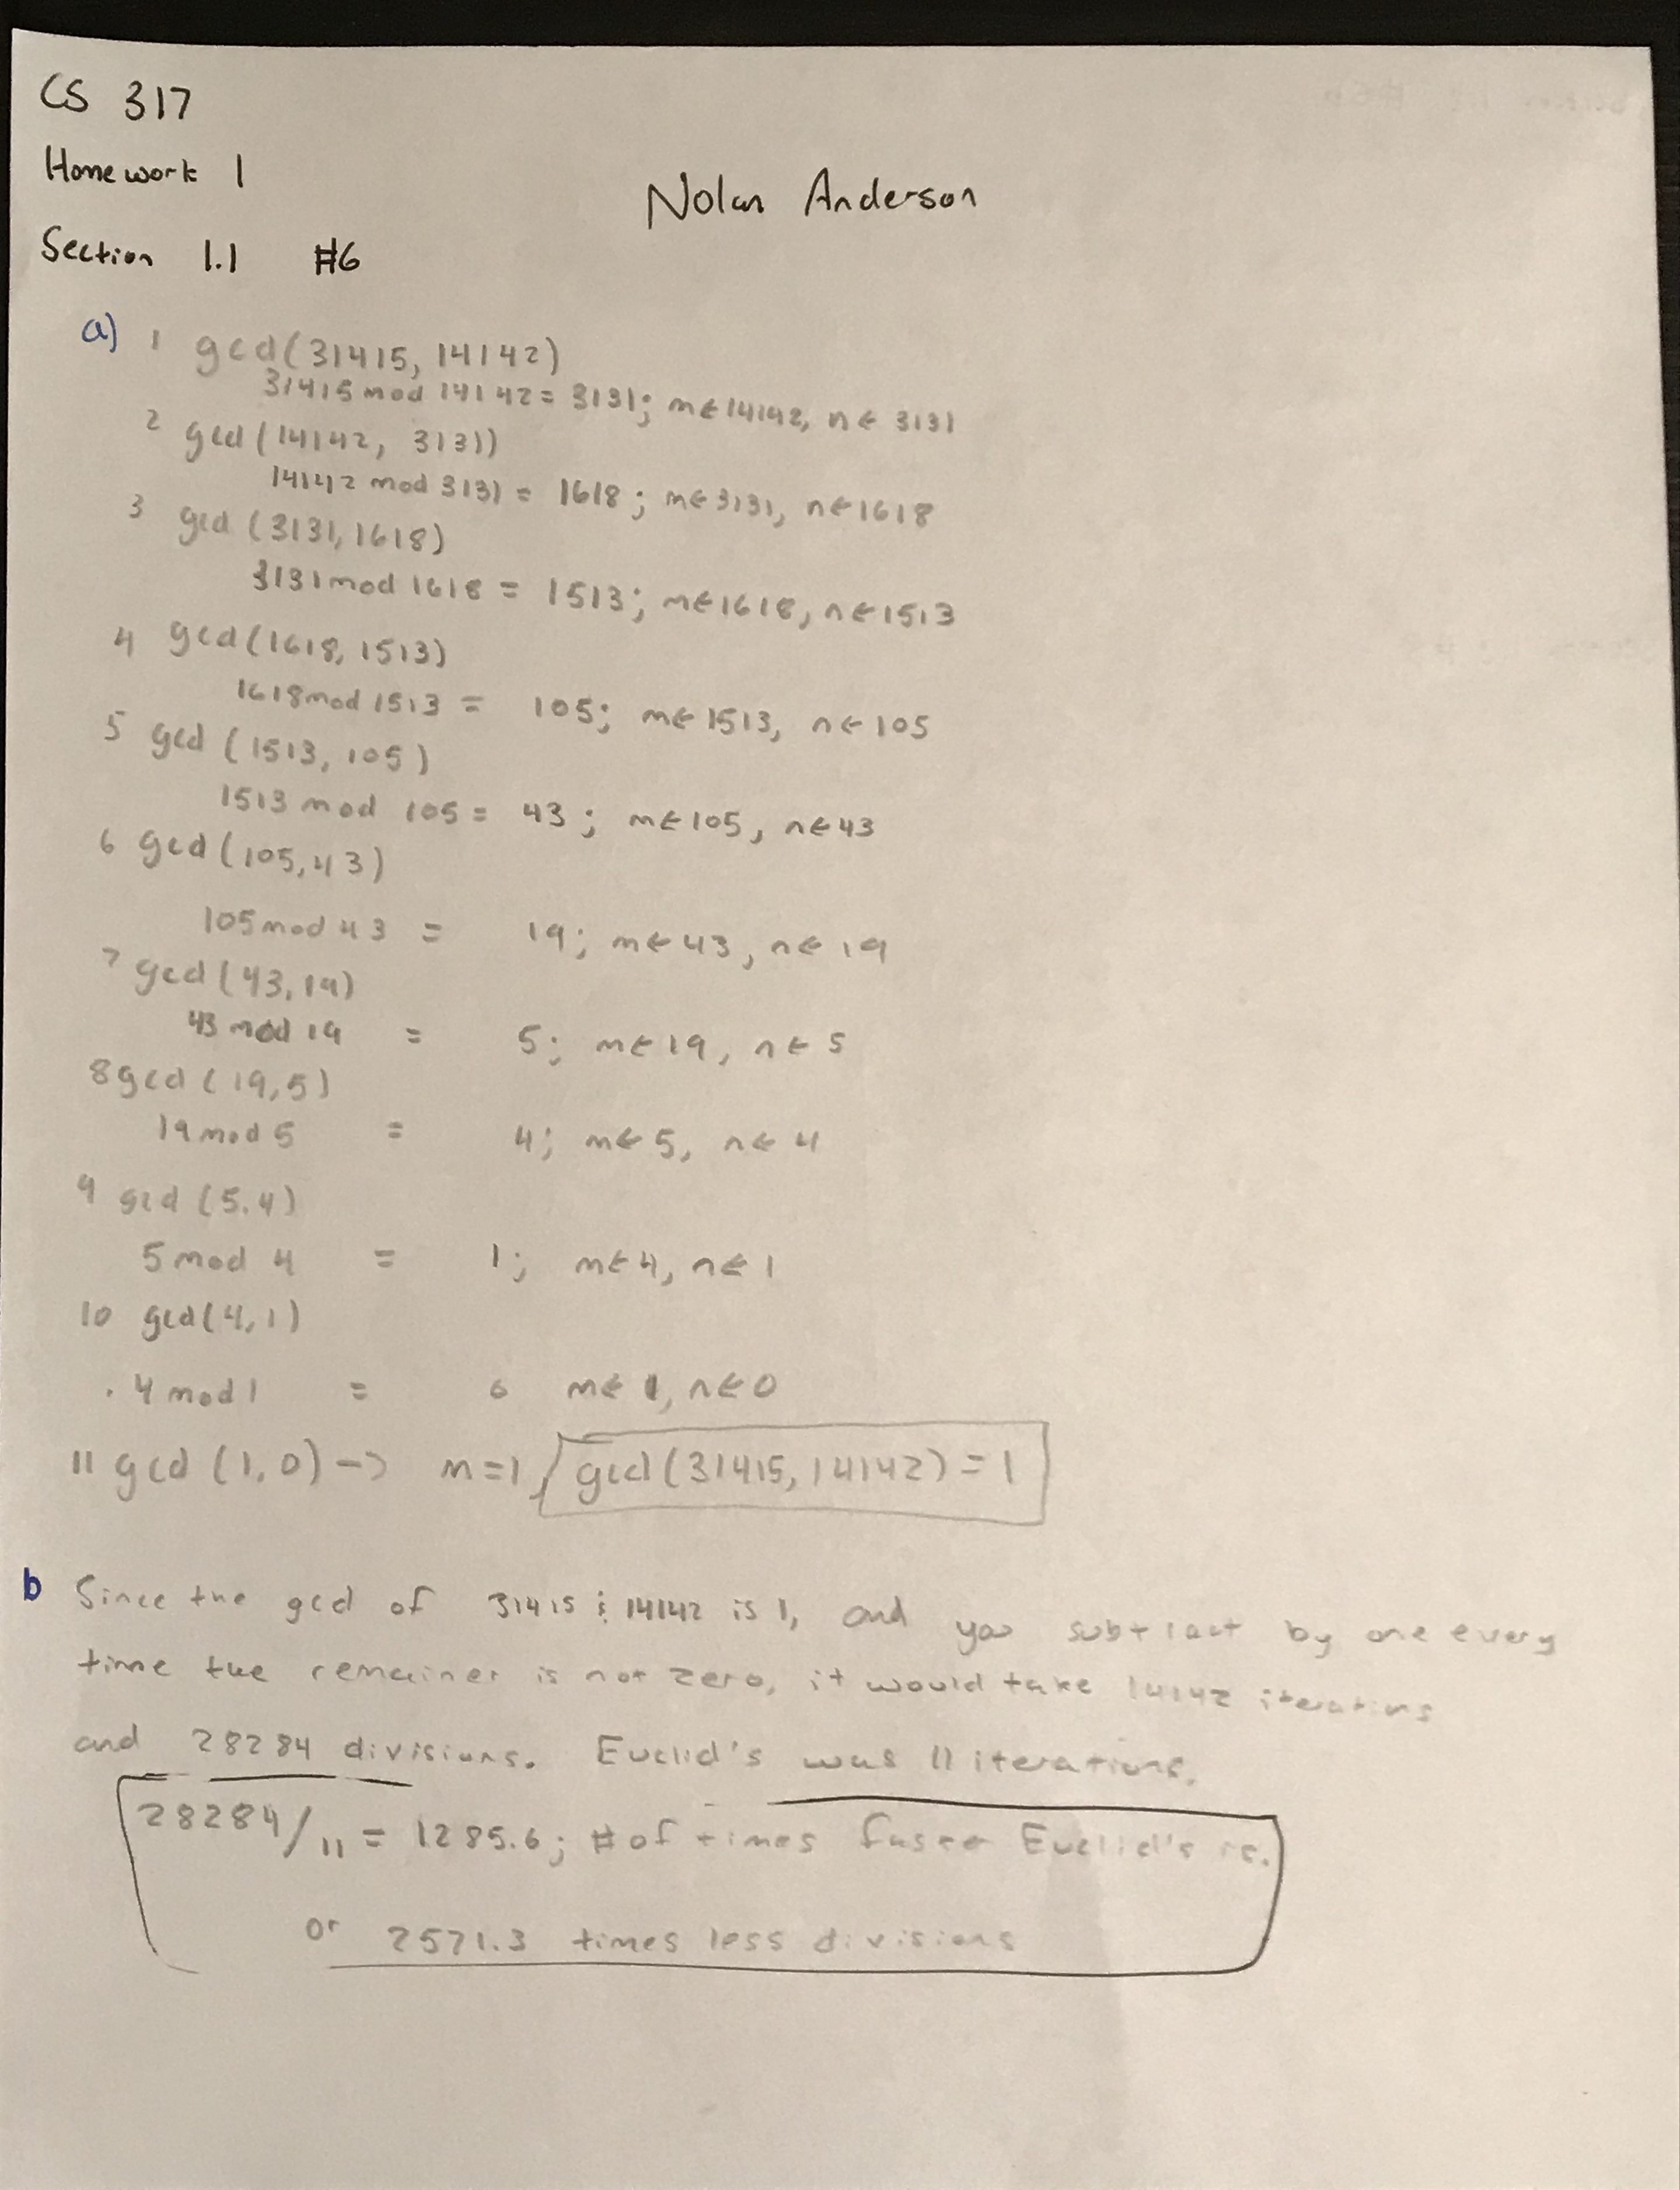 CS 317
Homework 1
Nolan Anderson
Section 1.1 #6
a) 1 gcd(31415, 14142)
31415 mod 14142 = 3131; m←14142, n← 3131
2 gcd(14142, 3131)
14142 mod 3131 = 1618; m←3131, n←1618
3 gcd (3131, 1618)
3131 mod 1618 = 1513; m←1618, n←1513
4 gcd(1618, 1513)
1618 mod 1513 = 105; m← 1513, n← 105
5 gcd (1513, 105)
1513 mod 105 = 43; m←105, n←43
6 gcd(105, 43)
105 mod 43 = 19; m←43, n← 19
7 gcd(43, 19)
43 mod 19 = 5; m←19, n← 5
8 gcd (19, 5)
19 mod 5 = 4; m← 5, n← 4
9 gcd (5.4)
5 mod 4 = 1; m←4, n← 1
10 gcd(4, 1)
. 4 mod 1 = 0 m← 1, n←0
11 gcd (1, 0) -> m=1, gcd(31415, 14142) = 1
b Since the gcd of 31415 & 14142 is 1, and you subtract by one every
time the remainer is not zero, it would take 14142 iterations
and 28284 divisions. Euclid's was 11 iterations.
28284/11 = 1285.6; # of times faster Euclid's is.
or 2571.3 times less divisions